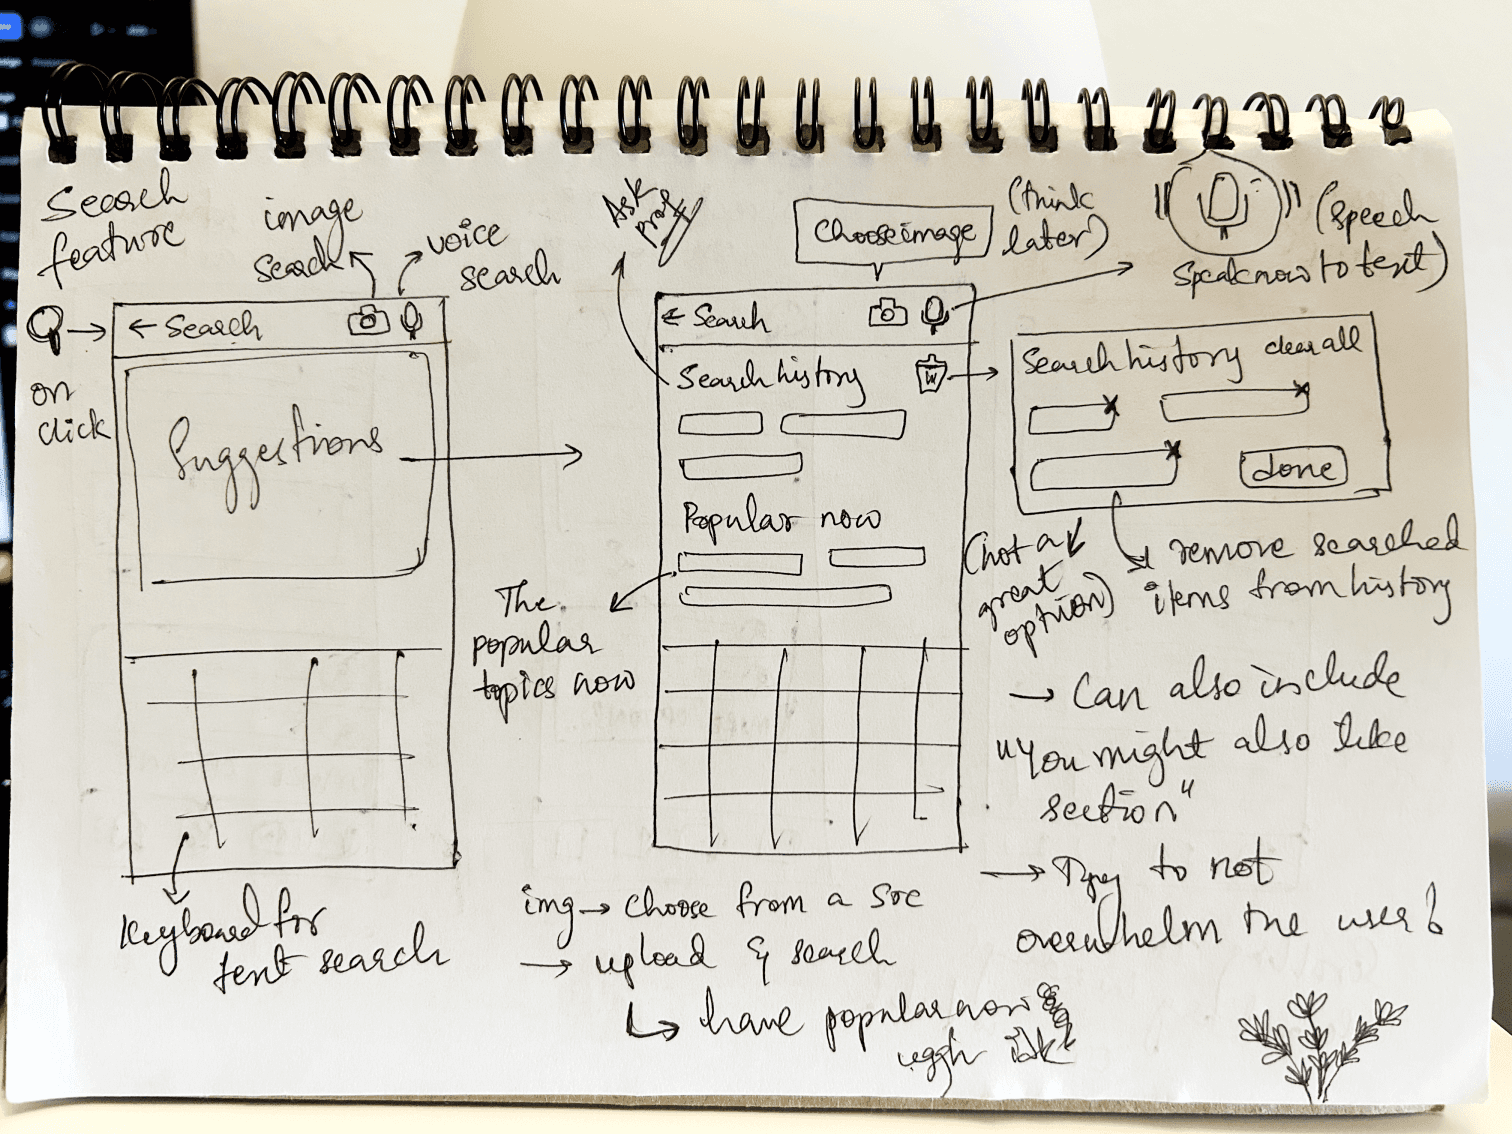 Search
feature
image
search
voice
search
Ask
prof
Choose image
(think
later)
(speech
to text)
Speak now
← Search
← Search
on
click
Suggestions
Search history
Search history clear all
done
Popular now
The
popular
topics now
(not a
great
option)
remove searched
items from history
→ Can also include
"You might also like
section"
→ Try to not
overwhelm the user!
Keyboard for
text search
img → choose from a src
→ upload & search
↳ have popular now
uggh idk